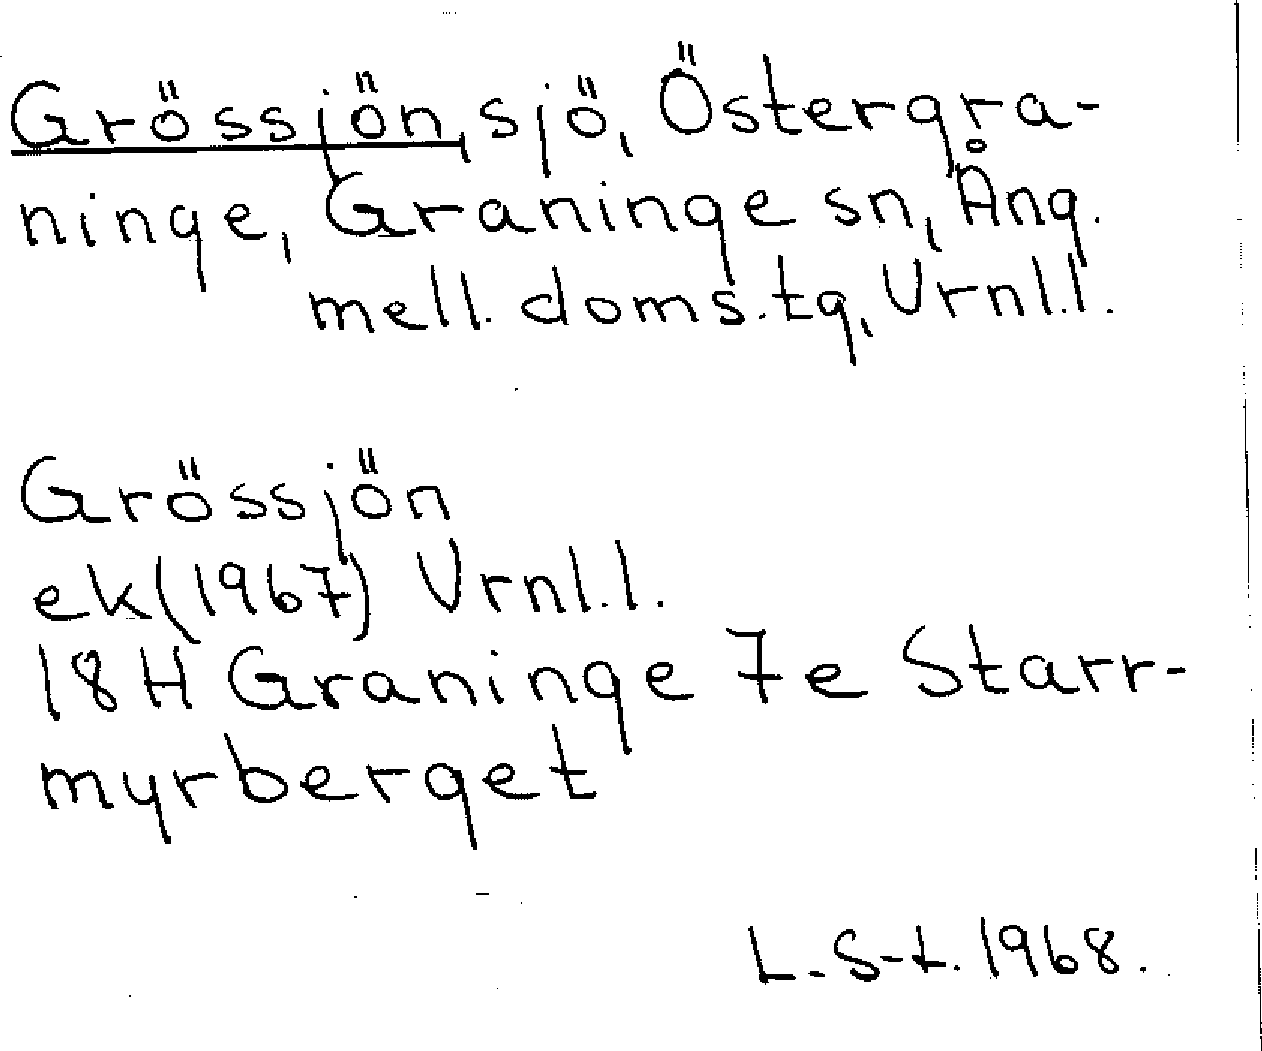 Grössjön, sjö, Östergra-
ninge, Graninge sn, Ång.
mell. doms.tg, Vrnl.l.
Grössjön
ek(1967) Vrnl.l.
18H Graninge 7e Starr-
myrberget
L.S-t. 1968.